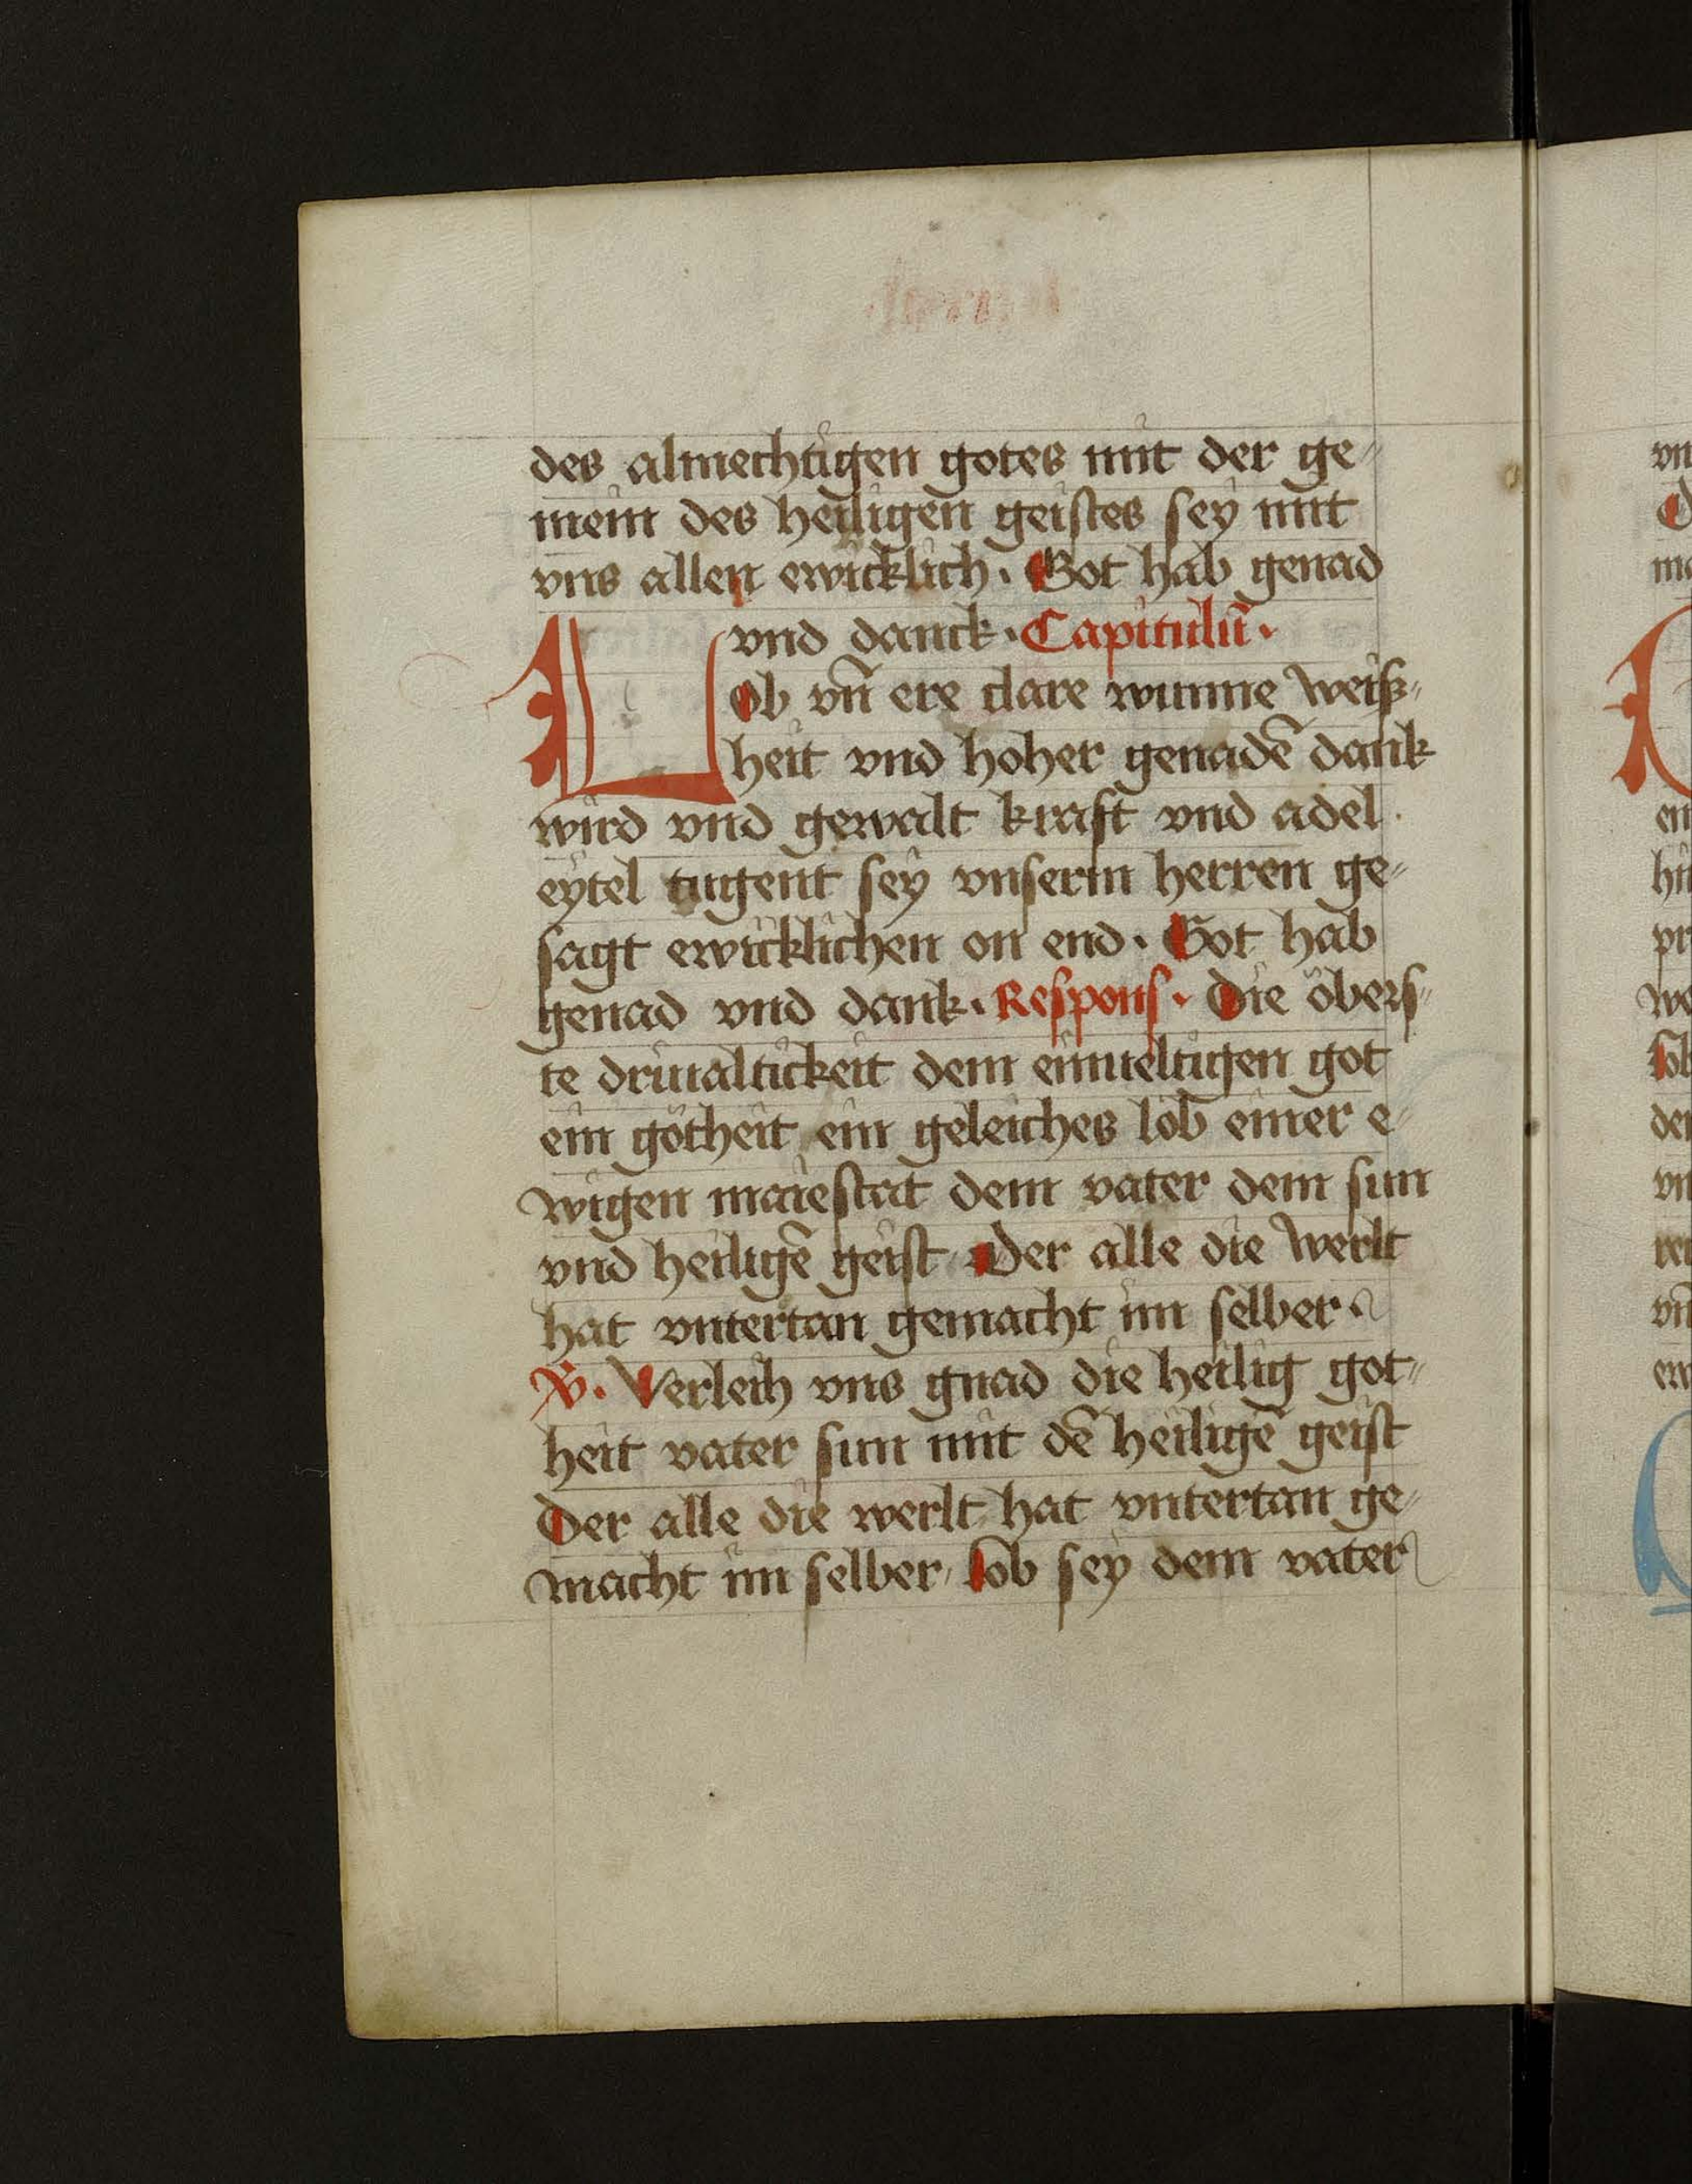 des almechtigen gotes mit der ge⸗
mein des heiligen geistes sey mit
vns allen ewicklich. Got hab genad
vnd danck. Capitulū.
Lob vn̄ ere clare wunne weiß⸗
heit vnd hoher genadē dank
wird vnd gewalt kraft vnd adel
eytel tugent sey vnserm herren ge⸗
sagt ewicklichen on end. Got hab
genad vnd dank. Respons. Die öbers⸗
te driualtickeit dem einueltigen got
ein gotheit ein geleiches lob einer e⸗
wigen maiestat dem vater dem sun
vnd heiligē geist Der alle die werlt
hat vntertan gemacht im selber
V. Verleih vns gnad die heilig got⸗
heit vater sun mit dē heiligē geist
Der alle die werlt hat vntertan ge⸗
macht im selber, lob sey dem vater